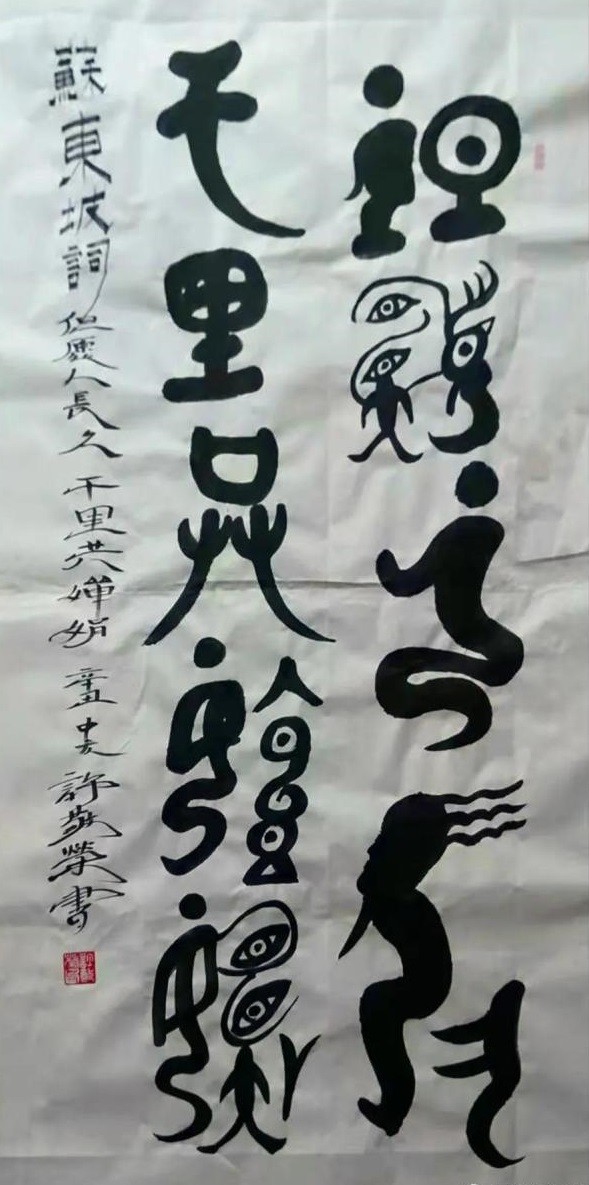 但願人長久
千里共嬋娟
蘇東坡詞 但願人長久 千里共嬋娟 辛丑 中夏 許敬榮書